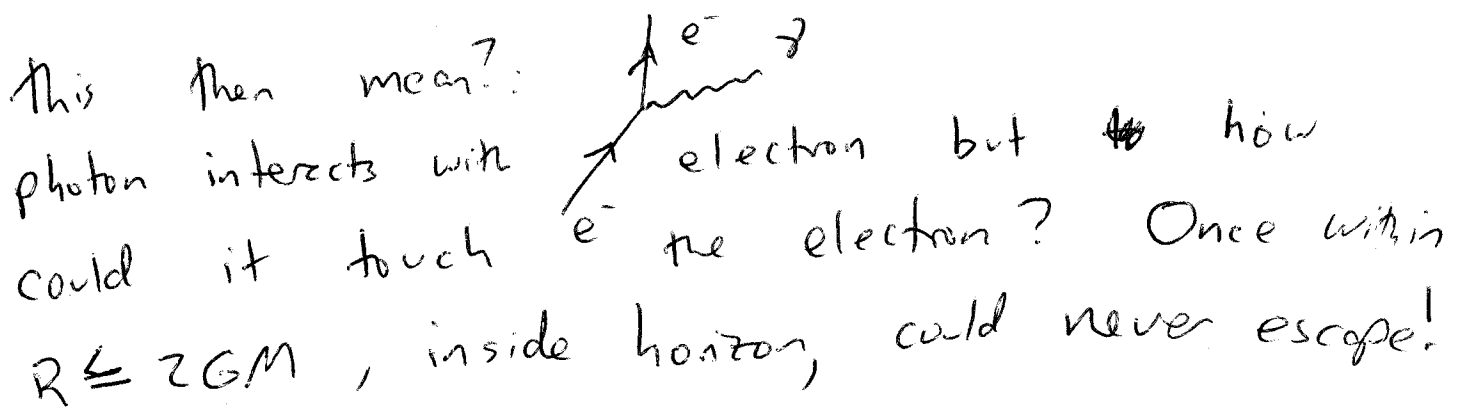 this then mean?: e⁻ γ
photon interacts with electron but how
could it touch e⁻ the electron? Once within
R ≤ 2GM, inside horizon, could never escape!